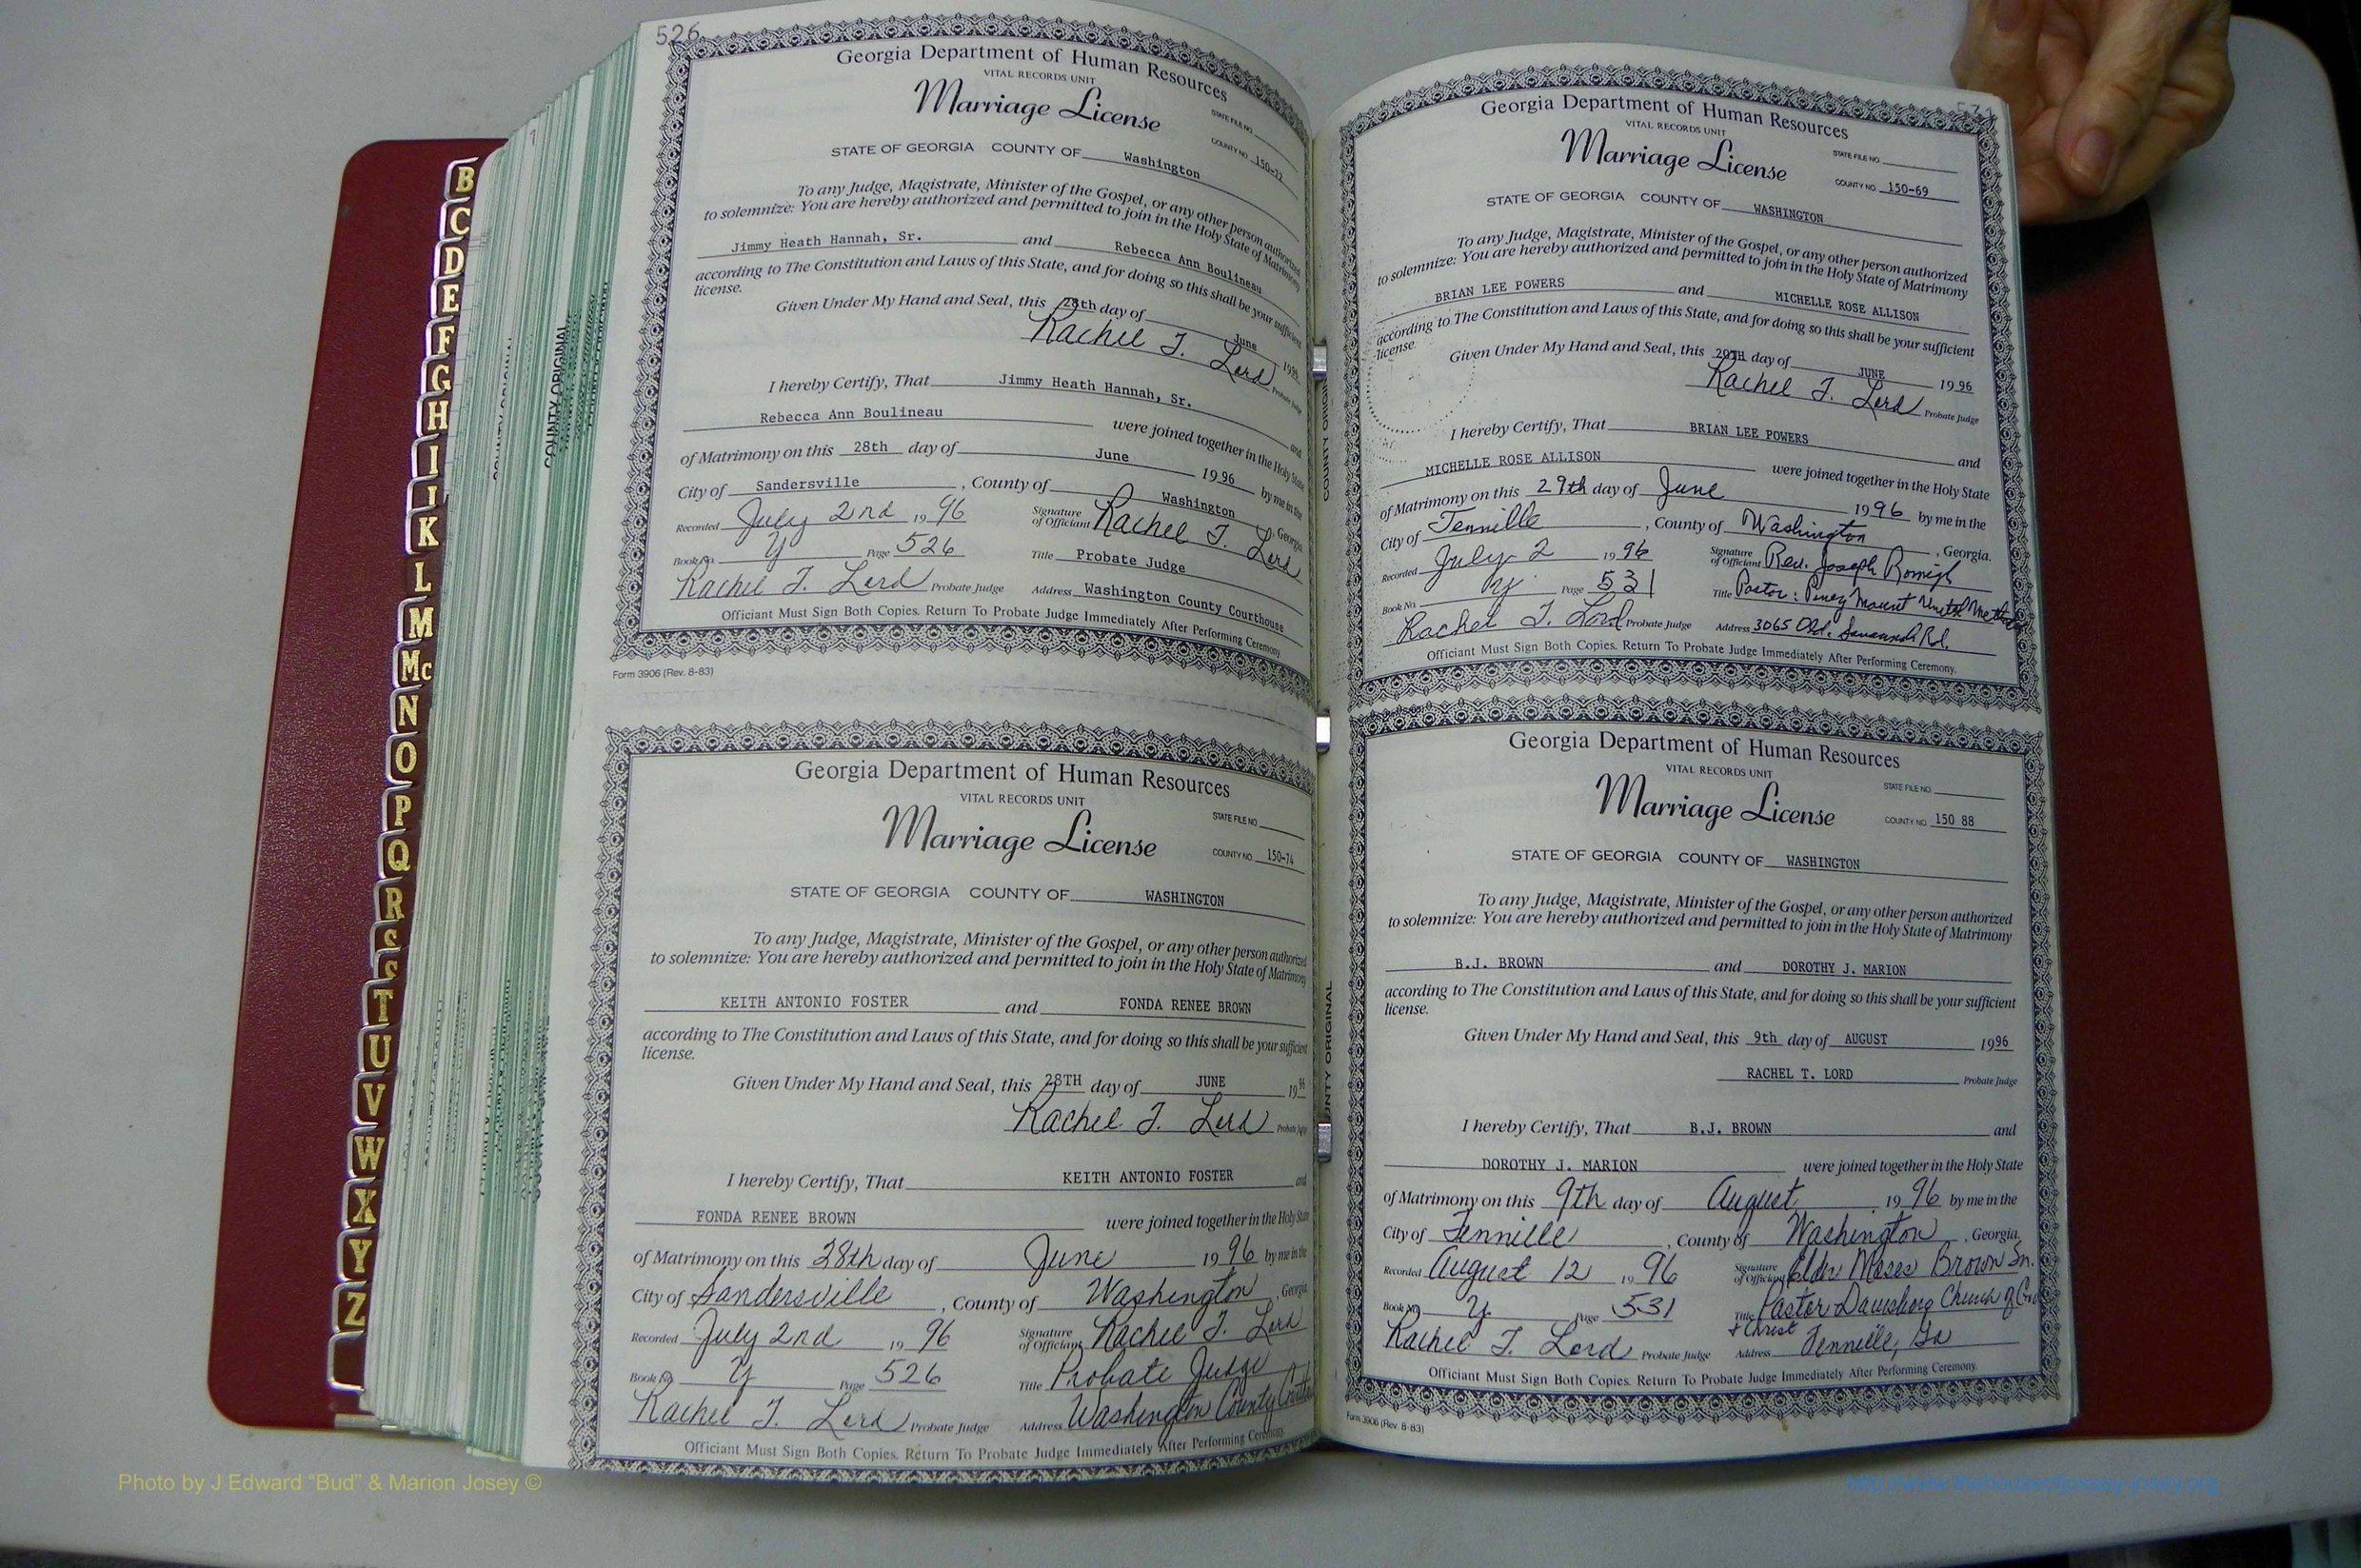 526
Georgia Department of Human Resources
VITAL RECORDS UNIT
Marriage License
STATE FILE NO.
COUNTY NO. 150-72
STATE OF GEORGIA COUNTY OF Washington
To any Judge, Magistrate, Minister of the Gospel, or any other person authorized
to solemnize: You are hereby authorized and permitted to join in the Holy State of Matrimony
Jimmy Heath Hannah, Sr. and Rebecca Ann Boulineau
according to The Constitution and Laws of this State, and for doing so this shall be your sufficient
license.
Given Under My Hand and Seal, this 28th day of June 1996
Rachel T. Lord Probate Judge
I hereby Certify, That Jimmy Heath Hannah, Sr. and
Rebecca Ann Boulineau were joined together in the Holy State
of Matrimony on this 28th day of June 1996 by me in the
City of Sandersville, County of Washington, Georgia
Recorded July 2nd, 1996 Signature of Officiant Rachel T. Lord
Book No. Y Page 526 Title Probate Judge
Rachel T. Lord Probate Judge Address Washington County Courthouse
Officiant Must Sign Both Copies. Return To Probate Judge Immediately After Performing Ceremony.
Form 3906 (Rev. 8-83)
Georgia Department of Human Resources
VITAL RECORDS UNIT
Marriage License
STATE FILE NO.
COUNTY NO. 150-74
STATE OF GEORGIA COUNTY OF WASHINGTON
To any Judge, Magistrate, Minister of the Gospel, or any other person authorized
to solemnize: You are hereby authorized and permitted to join in the Holy State of Matrimony
KEITH ANTONIO FOSTER and FONDA RENEE BROWN
according to The Constitution and Laws of this State, and for doing so this shall be your sufficient
license.
Given Under My Hand and Seal, this 28TH day of JUNE 1996
Rachel T. Lord Probate Judge
I hereby Certify, That KEITH ANTONIO FOSTER and
FONDA RENEE BROWN were joined together in the Holy State
of Matrimony on this 28th day of June 1996 by me in the
City of Sandersville, County of Washington, Georgia
Recorded July 2nd, 1996 Signature of Officiant Rachel T. Lord
Book No. Y Page 526 Title Probate Judge
Rachel T. Lord Probate Judge Address Washington County
Officiant Must Sign Both Copies. Return To Probate Judge Immediately After Performing Ceremony.
531
Georgia Department of Human Resources
VITAL RECORDS UNIT
Marriage License
STATE FILE NO.
COUNTY NO. 150-69
STATE OF GEORGIA COUNTY OF WASHINGTON
To any Judge, Magistrate, Minister of the Gospel, or any other person authorized
to solemnize: You are hereby authorized and permitted to join in the Holy State of Matrimony
BRIAN LEE POWERS and MICHELLE ROSE ALLISON
according to The Constitution and Laws of this State, and for doing so this shall be your sufficient
license.
Given Under My Hand and Seal, this 20TH day of JUNE 1996
Rachel T. Lord Probate Judge
I hereby Certify, That BRIAN LEE POWERS and
MICHELLE ROSE ALLISON were joined together in the Holy State
of Matrimony on this 29th day of June 1996 by me in the
City of Tennille, County of Washington, Georgia.
Recorded July 2 1996 Signature of Officiant Rev. Joseph Romigh
Book No. Y Page 531 Title Pastor: Piney Mount United
Rachel T. Lord Probate Judge Address 3065 Old. Savannah Rd.
Officiant Must Sign Both Copies. Return To Probate Judge Immediately After Performing Ceremony.
COUNTY ORIGINAL
Georgia Department of Human Resources
VITAL RECORDS UNIT
Marriage License
STATE FILE NO.
COUNTY NO. 150 88
STATE OF GEORGIA COUNTY OF WASHINGTON
To any Judge, Magistrate, Minister of the Gospel, or any other person authorized
to solemnize: You are hereby authorized and permitted to join in the Holy State of Matrimony
B.J. BROWN and DOROTHY J. MARION
according to The Constitution and Laws of this State, and for doing so this shall be your sufficient
license.
Given Under My Hand and Seal, this 9th day of AUGUST 1996
RACHEL T. LORD Probate Judge
I hereby Certify, That B.J. BROWN and
DOROTHY J. MARION were joined together in the Holy State
of Matrimony on this 9th day of August, 1996 by me in the
City of Tennille, County of Washington, Georgia
Recorded August 12, 1996 Signature of Officiant Elder Moses Brown Sr.
Book No. Y Page 531 Title Pastor Davisboro Church of God
+ Christ
Rachel T. Lord Probate Judge Address Tennille, Ga
Officiant Must Sign Both Copies. Return To Probate Judge Immediately After Performing Ceremony.
Form 3906 (Rev. 8-83)
COUNTY ORIGINAL
COUNTY ORIGINAL
B
C
D
E
F
G
H
I
I
K
L
M
Mc
N
O
P
Q
R
S
S
T
U
V
W
X
Y
Z
Photo by J Edward "Bud" & Marion Josey ©
http://www.thehouseofjossey-josey.org